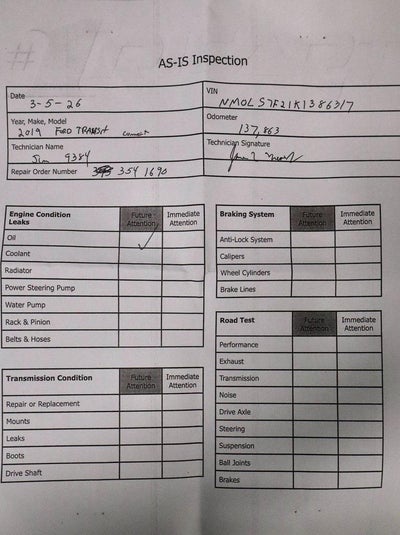 AS-IS Inspection
Date
3-5-26
VIN
NM0LS7F21K1386317
Year, Make, Model
2019 FORD TRANSIT connect
Odometer
137,863
Technician Name
Jim 9384
Technician Signature
Repair Order Number 354 1690
Engine Condition
Leaks
Future Attention
Immediate Attention
Oil
Coolant
Radiator
Power Steering Pump
Water Pump
Rack & Pinion
Belts & Hoses
Transmission Condition
Future Attention
Immediate Attention
Repair or Replacement
Mounts
Leaks
Boots
Drive Shaft
Braking System
Future Attention
Immediate Attention
Anti-Lock System
Calipers
Wheel Cylinders
Brake Lines
Road Test
Future Attention
Immediate Attention
Performance
Exhaust
Transmission
Noise
Drive Axle
Steering
Suspension
Ball Joints
Brakes